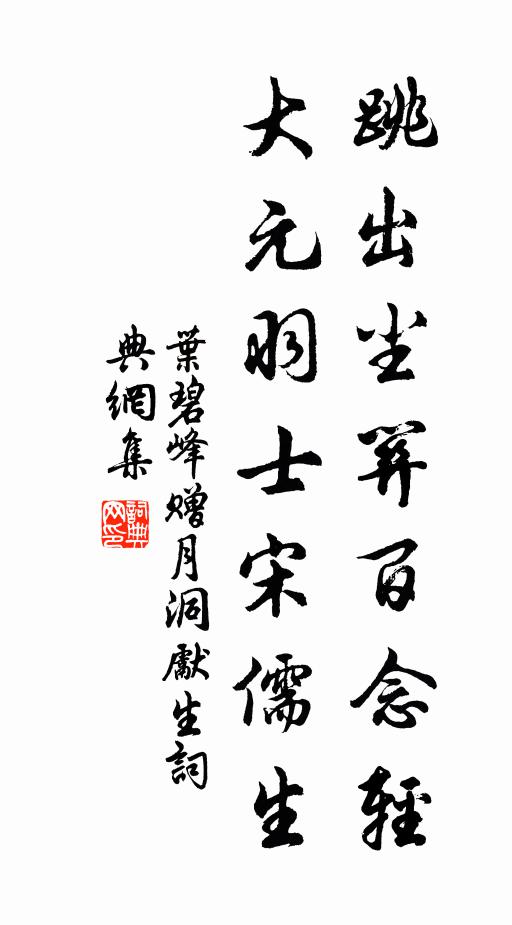 跳出尘羿百念輕
大元羽士宋儒生
葉碧峰贈月洞獻生詞
典網集
詞典
网印